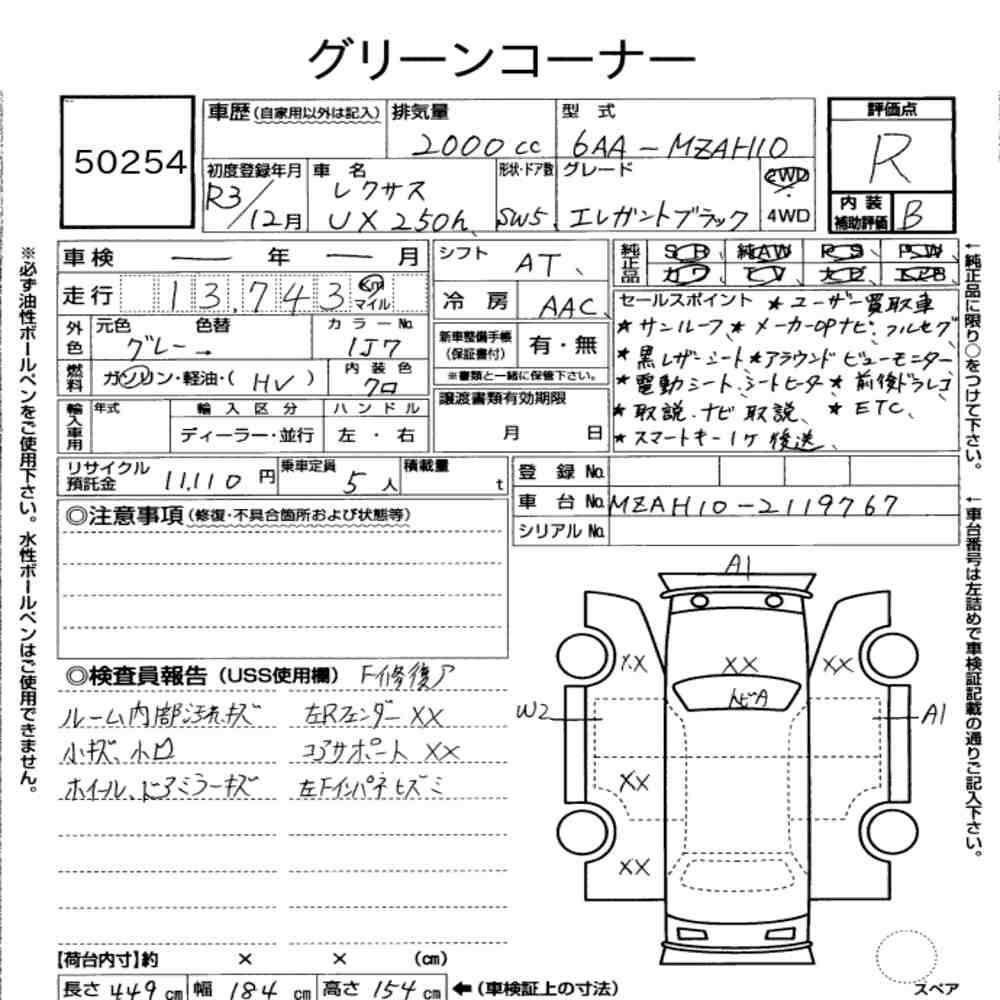 グリーンコーナー
50254
車歴(自家用以外は記入) 排気量 2000cc 型式 6AA-MZAH10 評価点 R
初度登録年月 R3/12月 車名 レクサス UX 250h 形状・ドア数 SW5 グレード エレガントブラック 2WD 4WD
内装補助評価 B
車検 ― 年 ― 月 シフト AT 純正品 SR 純AW PS PW
走行 13,743 Km マイル 冷房 AAC カワ TV ナビ エアB
外色 元色 グレー 色替 → カラーNo. 1J7 新車整備手帳(保証書付) 有・無
※書類と一緒に保管下さい。
燃料 ガソリン・軽油・( HV ) 内装色 クロ
輸入車用 年式 輸入区分 ディーラー・並行 ハンドル 左・右 譲渡書類有効期限 月 日
セールスポイント ★ユーザー買取車
★サンルーフ ★メーカーOPナビ・フルセグ
★黒レザーシート ★アラウンドビューモニター
★電動シート、シートヒータ ★前後ドラレコ
★取説、ナビ取説、 ★ETC、
★スマートキー1ケ後送、
リサイクル預託金 11,110 円 乗車定員 5 人 積載量 t
登録No.
車台No. MZAH10-2119767
シリアルNo.
◎注意事項(修復・不具合箇所および状態等)
◎検査員報告(USS使用欄) F修復ア
ルーム内部汚れキズ 左Rフェンダー XX
小キズ、小凹 コアサポート XX
ホイール、ドアミラーキズ 左Fインパネヒズミ
A1
XX XX XX
トビA
W2 A1
XX
XX
スペア
【荷台内寸】約 × × (cm)
長さ 449 cm 幅 184 cm 高さ 154 cm ←(車検証上の寸法)
※必ず油性ボールペンをご使用下さい。水性ボールペンはご使用できません。
←純正品に限り○をつけて下さい。
←車台番号は左詰めで車検証記載の通りご記入下さい。